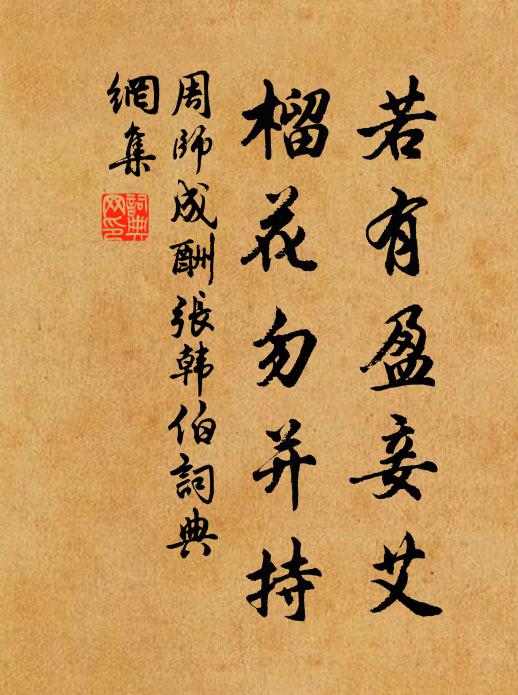 若有盈妾艾
榴花勿并持
周师成酬張韩伯詞典
網集
詞典
网印